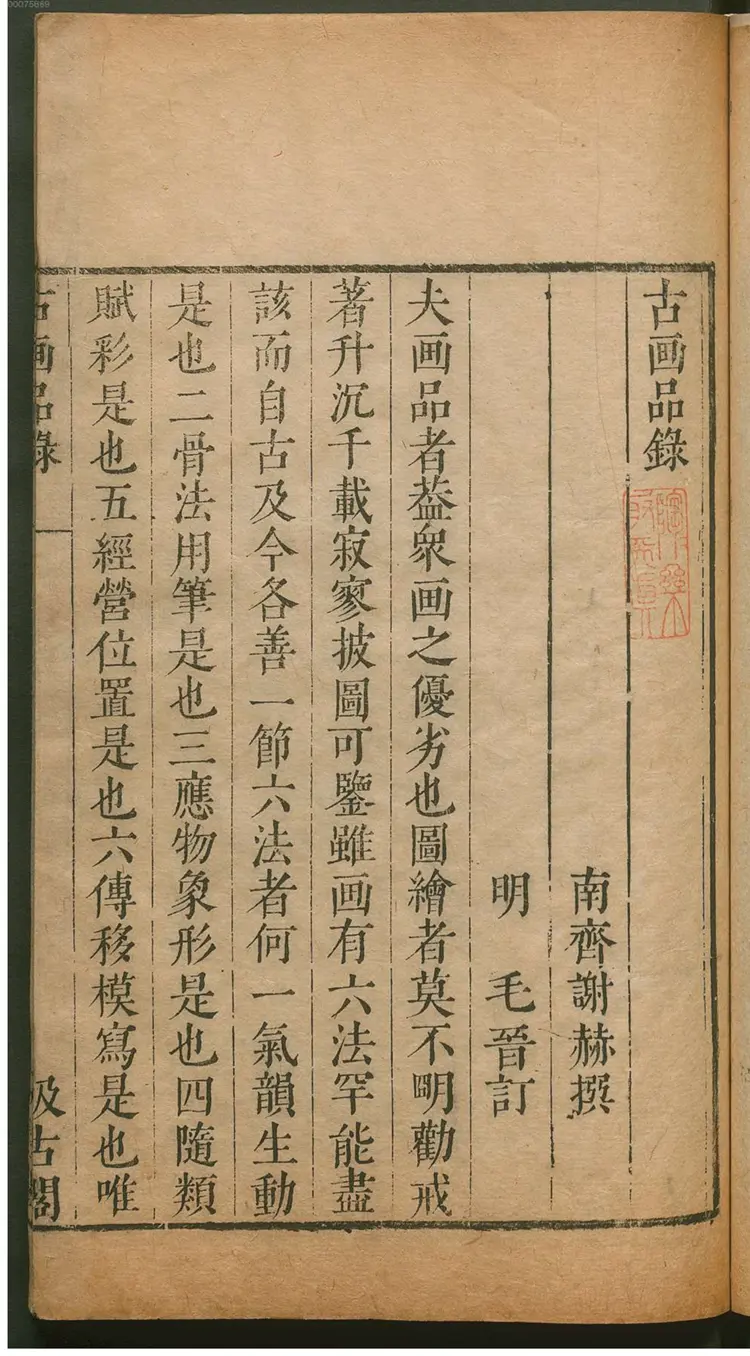 00075669
古画品錄
南齊謝赫撰
明 毛晉訂
夫画品者葢衆画之優劣也圖繪者莫不明勸戒
著升沉千載寂寥披圖可鑒雖画有六法罕能盡
該而自古及今各善一節六法者何一氣韻生動
是也二骨法用筆是也三應物象形是也四隨類
賦彩是也五經營位置是也六傳移模寫是也唯
古画品錄 汲古閣